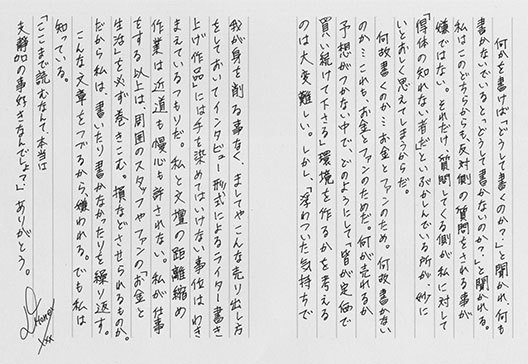 何かを書けば「どうして書くのか？」と聞かれ、何も
書かないでいると「どうして書かないのか？」と聞かれる。
私はこのどちらからも、反対側の質問をされる事が
嫌ではない。それだけ、質問してくる側が私に対して
「得体の知れない者だ」といぶかしんでいる所が、妙に
いとおしく思えてしまうからだ。
何故書くのか…お金とファンのため。何故書かない
のか…これも、お金とファンのためだ。何が売れるか
予想がつかない中で、どのようにして「皆が定価で
買い続けて下さる」環境を作るかを考える
のは大変難しい。しかし、「浮わついた気持ちで
我が身を削る事なく、ましてやこんな売り出し方
をしておいてインタビュー形式によるライター書き
上げ作品」には手を染めてはいけない事位はわき
まえているつもりだ。私と文壇の距離縮め
作業は近道も慢心も許されない。私が仕事
をする以上は、周囲のスタッフやファンの「お金と
生活」を必ず巻きこむ。損などさせられるものか。
だから私は、書いたり書かなかったりを繰り返す。
こんな文章をつづるから嫌われる。でも私は
知っている。
「ここまで読むなんて、本当は
夫静の事好きなんでしょ？」ありがとう。